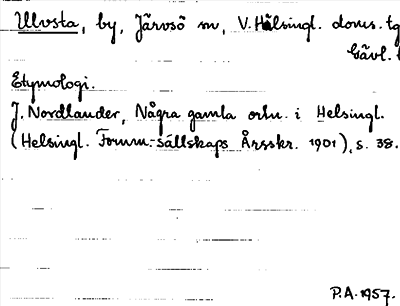 Ulvsta, by, Järvsö sn, V. Hälsingl. doms. tg
Gävl. l
Etymologi.
J. Nordlander, Några gamla ortn. i Helsingl.
(Helsingl. Fornm.-sällskaps Årsskr. 1901), s. 38.
P.A. 1957.